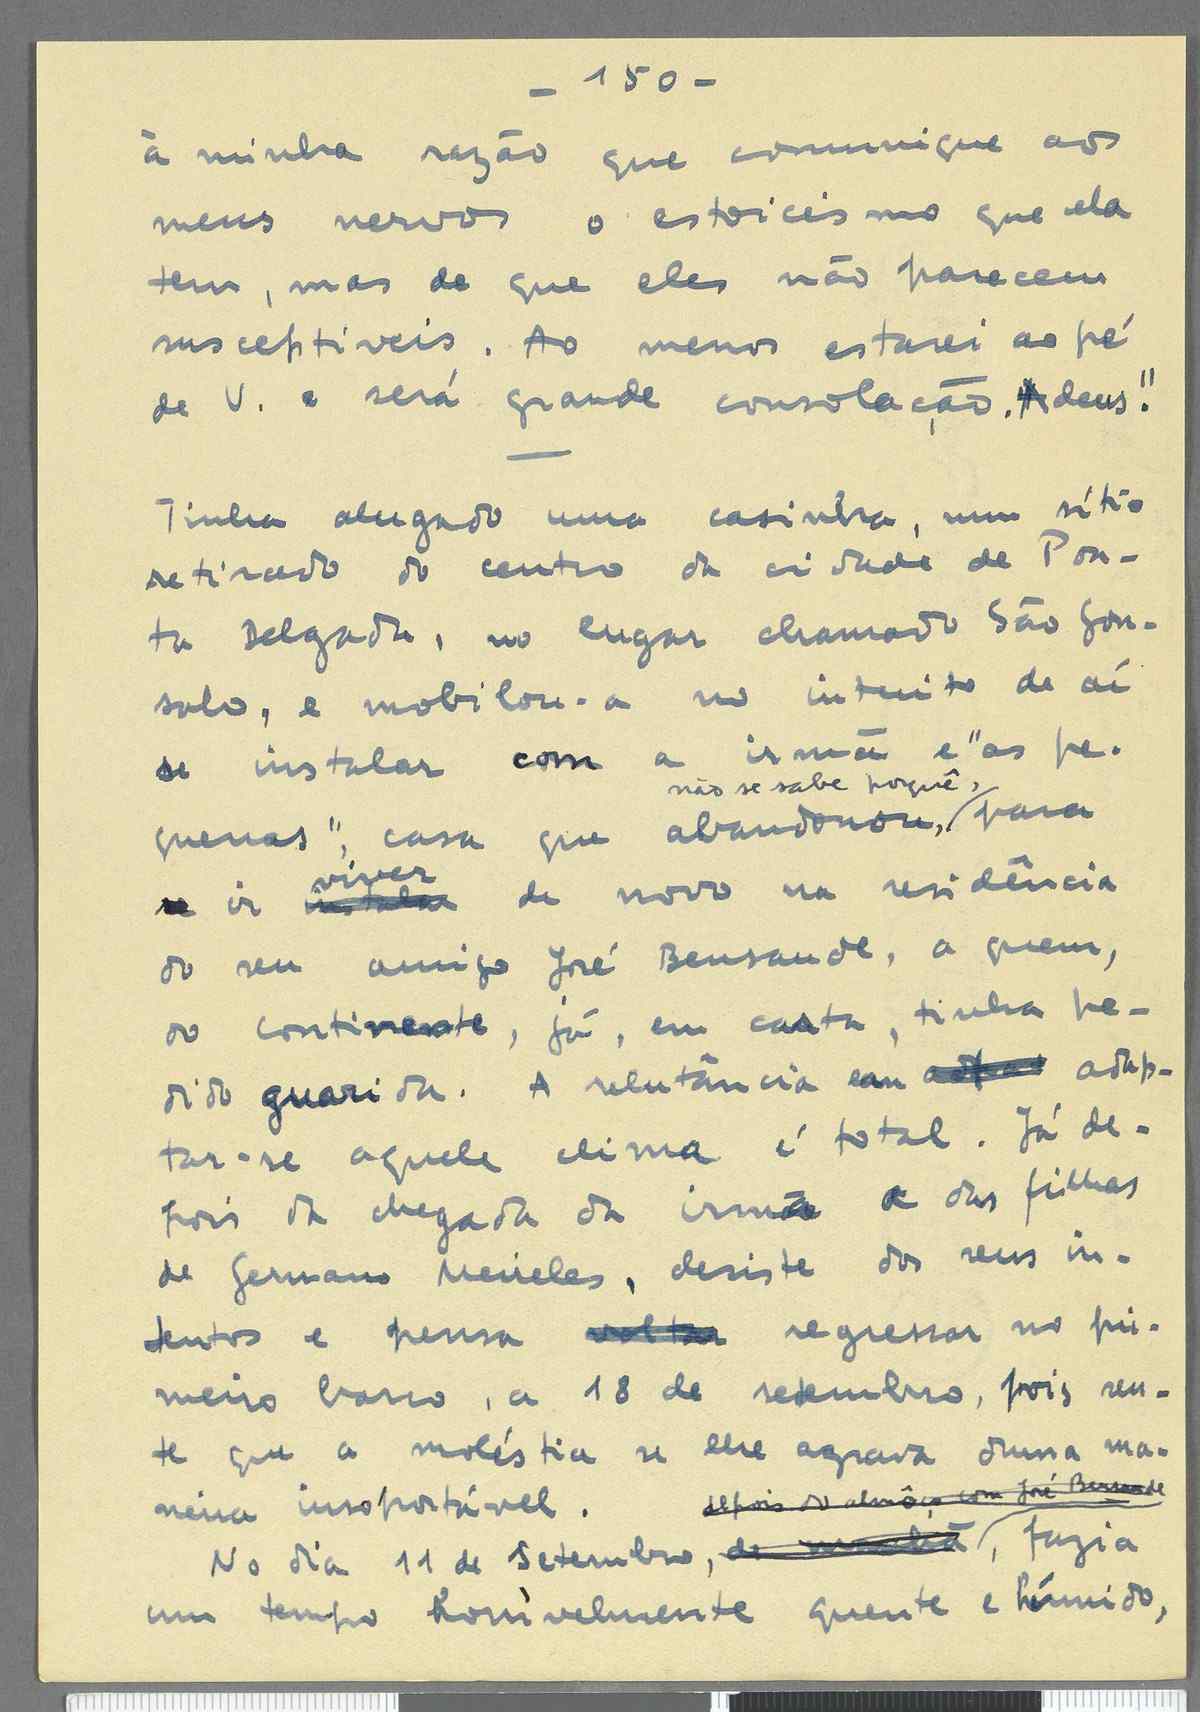 - 150 -
à minha razão que comunique aos
meus nervos o estoicismo que ela
tem, mas de que eles não parecem
susceptíveis. Ao menos estarei ao pé
de V. e será grande consolação. Adeus!"
Tinha alugado uma casinha, num sítio
retirado do centro da cidade de Pon-
ta Delgada, no lugar chamado São Gon-
salo, e mobilou-a no intuito de aí
se instalar com a irmã e "as pe-
não se sabe porquê,
quenas", casa que abandonou, para
viver
se ir instalar de novo na residência
do seu amigo José Bensaude, a quem,
do continente, já, em carta, tinha pe-
dido guarida. A relutância em adap-
tar-se aquele clima é total. Já de-
pois da chegada da irmã e das filhas
de Germano Meireles, desiste dos seus in-
tentos e pensa voltar regressar no pri-
meiro barco, a 18 de setembro, pois sen-
te que a moléstia se lhe agrava duma ma-
neira insoportável.
depois do almôço com José Bensaude
No dia 11 de Setembro, de manhã, fazia
um tempo horrivelmente quente e húmido,